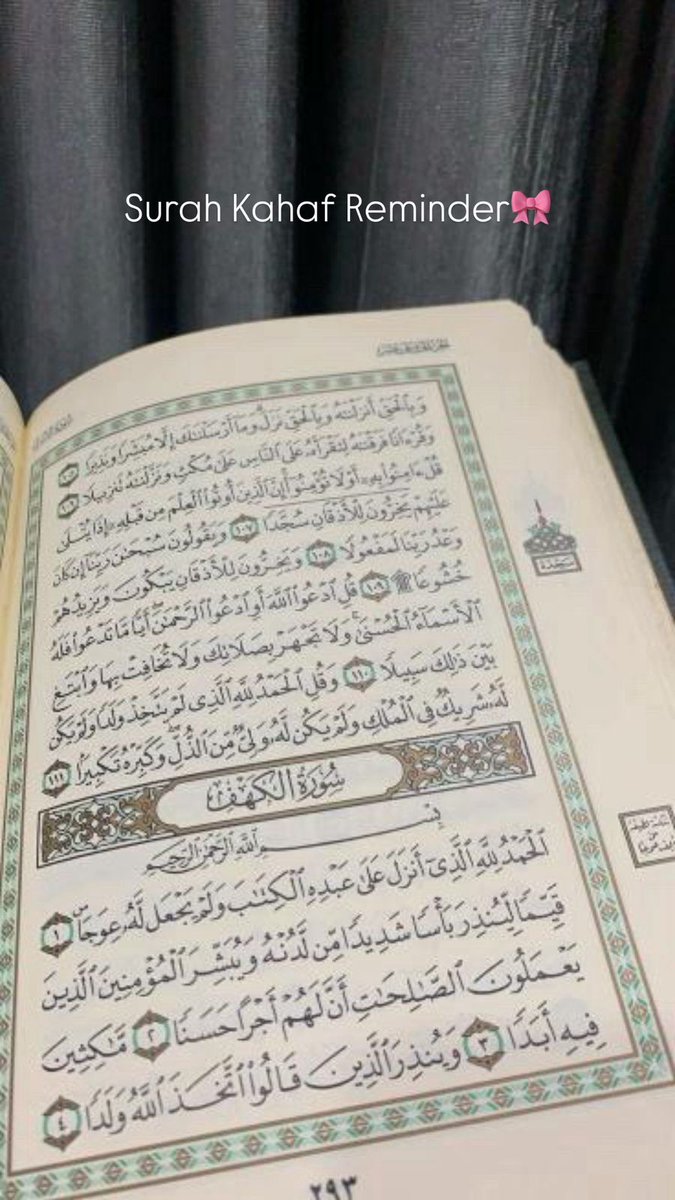 Surah Kahaf Reminder🎀
وَبِالْحَقِّ أَنزَلْنَٰهُ وَبِالْحَقِّ نَزَلَ وَمَا أَرْسَلْنَٰكَ إِلَّا مُبَشِّرًا وَنَذِيرًا ١٠٥
وَقُرْءَانًا فَرَقْنَٰهُ لِتَقْرَأَهُ عَلَى النَّاسِ عَلَىٰ مُكْثٍ وَنَزَّلْنَٰهُ تَنزِيلًا ١٠٦
قُلْ ءَامِنُوا بِهِ أَوْ لَا تُؤْمِنُوا إِنَّ الَّذِينَ أُوتُوا الْعِلْمَ مِن قَبْلِهِ إِذَا يُتْلَىٰ
عَلَيْهِمْ يَخِرُّونَ لِلْأَذْقَانِ سُجَّدًا ١٠٧ وَيَقُولُونَ سُبْحَٰنَ رَبِّنَا إِن كَانَ
وَعْدُ رَبِّنَا لَمَفْعُولًا ١٠٨ وَيَخِرُّونَ لِلْأَذْقَانِ يَبْكُونَ وَيَزِيدُهُمْ
خُشُوعًا ۩ ١٠٩ قُلِ ادْعُوا اللَّهَ أَوِ ادْعُوا الرَّحْمَٰنَ أَيًّا مَّا تَدْعُوا فَلَهُ
الْأَسْمَاءُ الْحُسْنَىٰ وَلَا تَجْهَرْ بِصَلَاتِكَ وَلَا تُخَافِتْ بِهَا وَابْتَغِ
بَيْنَ ذَٰلِكَ سَبِيلًا ١١٠ وَقُلِ الْحَمْدُ لِلَّهِ الَّذِي لَمْ يَتَّخِذْ وَلَدًا وَلَمْ يَكُن
لَّهُ شَرِيكٌ فِي الْمُلْكِ وَلَمْ يَكُن لَّهُ وَلِيٌّ مِّنَ الذُّلِّ وَكَبِّرْهُ تَكْبِيرًا ١١١
سُورَةُ الْكَهْفِ
بِسْمِ اللَّهِ الرَّحْمَٰنِ الرَّحِيمِ
الْحَمْدُ لِلَّهِ الَّذِي أَنزَلَ عَلَىٰ عَبْدِهِ الْكِتَٰبَ وَلَمْ يَجْعَل لَّهُ عِوَجَا ۜ ١
قَيِّمًا لِّيُنذِرَ بَأْسًا شَدِيدًا مِّن لَّدُنْهُ وَيُبَشِّرَ الْمُؤْمِنِينَ الَّذِينَ
يَعْمَلُونَ الصَّٰلِحَٰتِ أَنَّ لَهُمْ أَجْرًا حَسَنًا ٢ مَّٰكِثِينَ
فِيهِ أَبَدًا ٣ وَيُنذِرَ الَّذِينَ قَالُوا اتَّخَذَ اللَّهُ وَلَدًا ٤
سجدة
٢٩٣